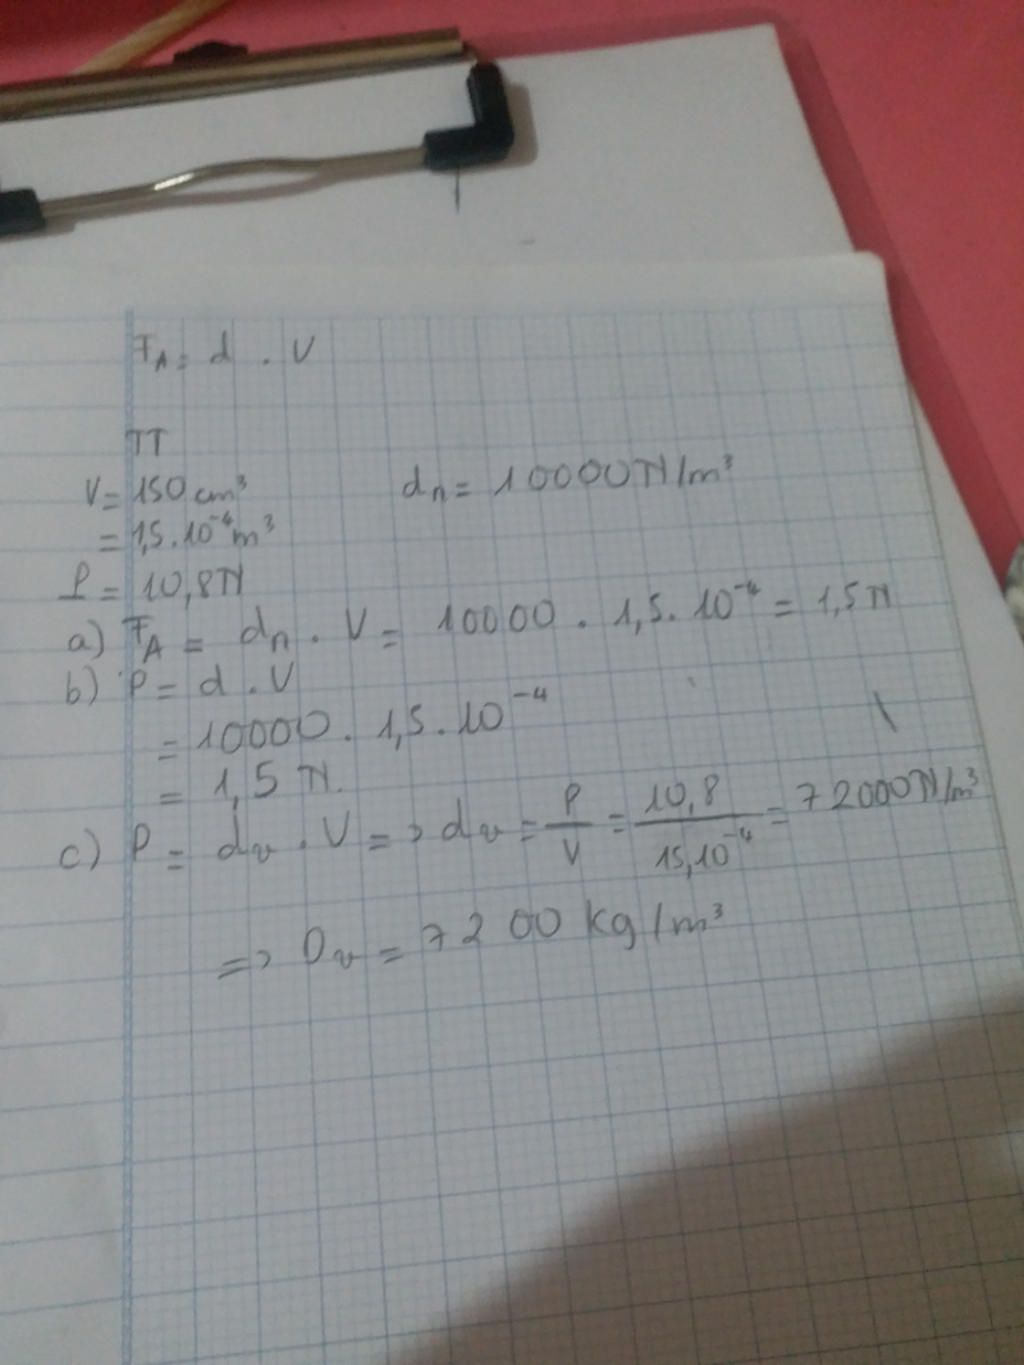 FA = d . V
TT
V = 150 cm³ dn = 10000 N/m³
= 1,5.10⁻⁴ m³
P = 10,8 N
a) FA = dn . V = 10000 . 1,5. 10⁻⁴ = 1,5 N
b) P = d . V
= 10000. 1,5. 10⁻⁴
= 1,5 N.
c) P = dv . V => dv = P/V = 10,8/15,10⁻⁴ = 72000 N/m³
=> Dv = 7200 kg/m³